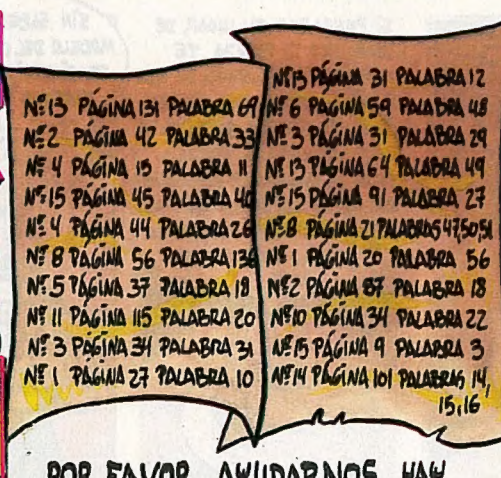 Nº 13 PÁGINA 131 PALABRA 69
Nº 2 PÁGINA 42 PALABRA 33
Nº 4 PÁGINA 15 PALABRA 11
Nº 15 PÁGINA 45 PALABRA 40
Nº 4 PÁGINA 44 PALABRA 26
Nº 8 PÁGINA 56 PALABRA 136
Nº 5 PÁGINA 37 PALABRA 18
Nº 11 PÁGINA 115 PALABRA 20
Nº 3 PÁGINA 34 PALABRA 31
Nº 1 PÁGINA 27 PALABRA 10
Nº 13 PÁGINA 31 PALABRA 12
Nº 6 PÁGINA 59 PALABRA 48
Nº 3 PÁGINA 31 PALABRA 29
Nº 13 PÁGINA 64 PALABRA 49
Nº 15 PÁGINA 91 PALABRA 27
Nº 8 PÁGINA 21 PALABRAS 47,50,51
Nº 1 PÁGINA 20 PALABRA 56
Nº 2 PÁGINA 87 PALABRA 18
Nº 10 PÁGINA 34 PALABRA 22
Nº 15 PÁGINA 9 PALABRA 3
Nº 14 PÁGINA 101 PALABRAS 14,
15,16
POR FAVOR, AYUDARNOS, HAY